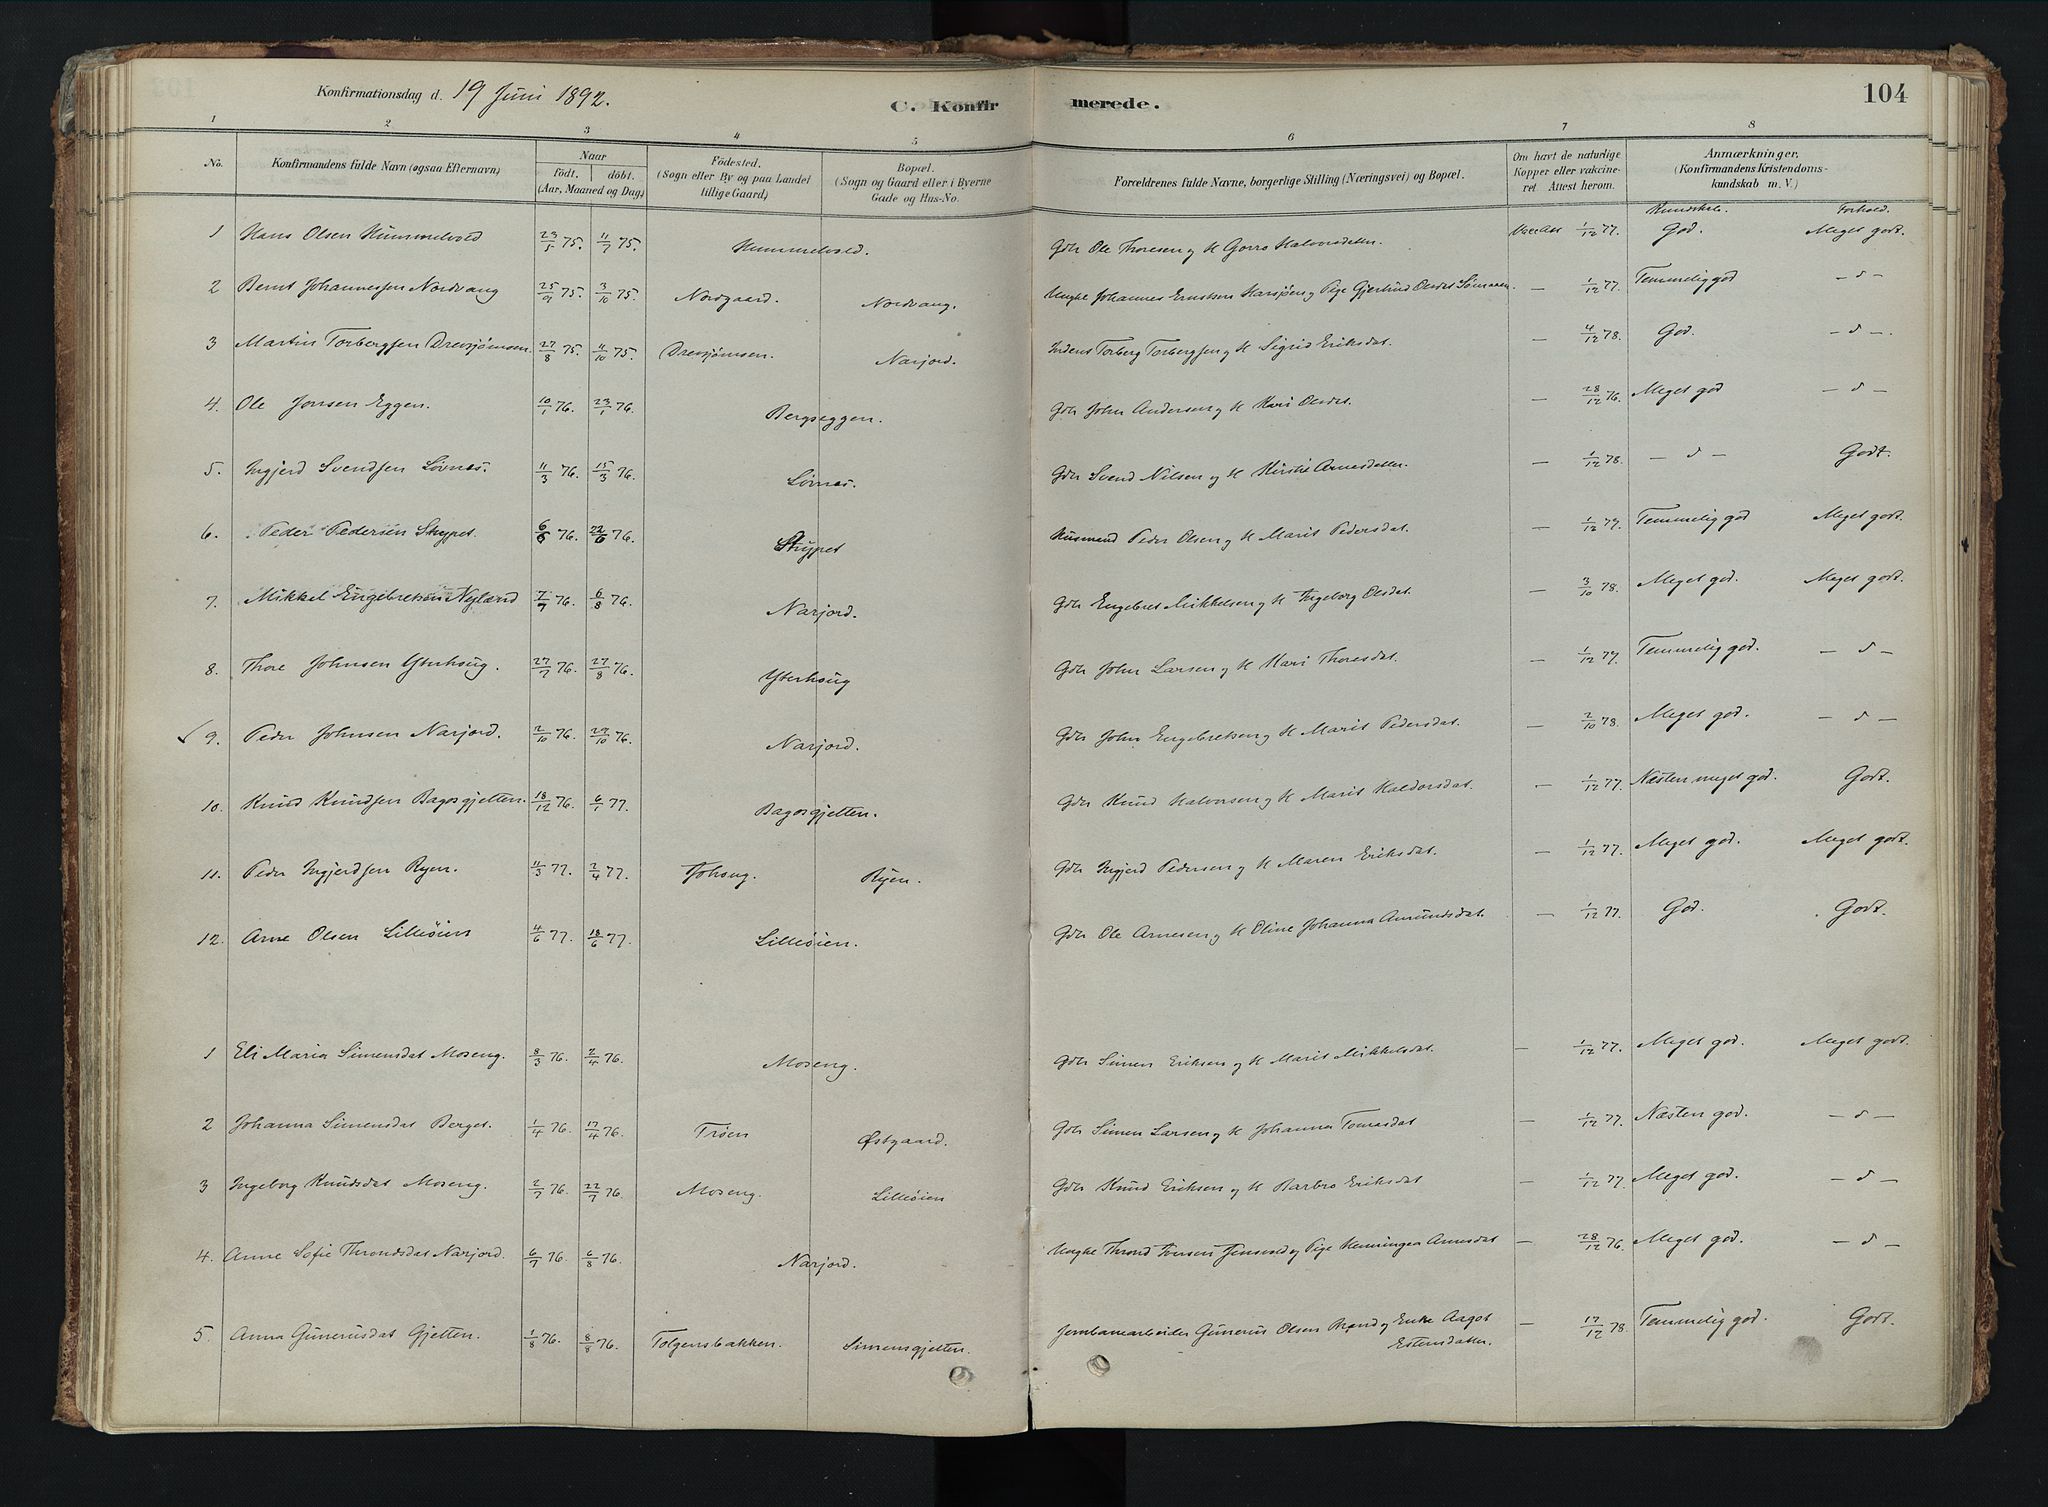 Konfirmationsdag d. 19 Juni 1892.
C. Konfirmerede.
104
1 2 3 4 5 6 7 8
No. Konfirmandens fulde Navn (ogsaa Efternavn) Naar födt. döbt. (Aar, Maaned og Dag) Födested. (Sogn eller By og paa Landet tillige Gaard) Bopæl. (Sogn og Gaard eller i Byerne Gade og Hus-No. Forældrenes fulde Navne, borgerlige Stilling (Næringsvei) og Bopæl. Om havt de naturlige Kopper eller vakcineret. Attest herom. Anmærkninger. (Konfirmandens Kristendomskundskab m. V.)
Kundskab. Forhold.
1 Hans Olsen Hummelvold 23/5 75. 11/7 75. Hummelvold. Gdr Ole Thoresen og H Gorro Halvorsdatter. 1/12 77. God. Meget godt.
2 Bernt Johannessen Nordvang 25/9 75. 3/10 75. Nordgaard. Nordvang. Ungke Johannes Ernstsen og Pige Gjertrud Olsdat — 1/12 77. Temmelig god — d —
3 Martin Torbergsen Drevsjømoen. 27/8 75. 4/10 75. Drevsjømoen. Narjord. Inderst Torberg Torbergsen og H Sigrid Eriksdat. — 4/12 78. God. — d —.
4. Ole Jonsen Eggen. 10/1 76. 23/1 76. Bergseggen. Gdr John Andersen og H Kari Olsdat. — 28/12 76. Meget god — d —
5. Ingjerd Svendsen Lövnes. 11/3 76. 15/3 76. Lövnes. Gdr Svend Nilsen og H Kirsti Arnesdatter. — 1/12 78. — d — Godt.
6. Peder Pedersen Strypet. 6/6 76. 22/6 76. Strypet Husmand Peder Olsen og H Marit Pedersdat. — 1/12 79. Temmelig god Meget godt.
7. Mikkel Engebretsen Nyland 7/7 76. 6/8 76. Narjord. Gdr Engebret Mikkelsen og H Ingeborg Olsdat. — 3/10 78. Meget god. Meget godt.
8. Thore Johnsen Ytterhoug. 27/7 76. 27/8 76. Ytterhoug Gdr John Larsen og H Kari Thoresdat. — 1/12 79. Temmelig god. — d —
✓ 9. Peder Johnsen Narjord. 2/10 76. 29/10 76. Narjord. Gdr John Engebretsen og H Marit Pedersdat. — 2/10 78. Meget god. — d —
10. Knud Knudsen Bagosgjetten. 18/12 76. 6/1 77. Bagosgjetten. Gdr Knud Halvorsen og H Marit Haldorsdat. — 1/12 77. Næsten meget god. Godt.
11. Peder Ingjerdsen Ryen. 11/3 77. 2/4 77. Ryen. Gdr Ingjerd Pedersen og H Maren Eriksdat. — 1/12 77. Meget god. Meget godt.
12. Arne Olsen Lilleöien 4/6 77. 18/6 77. Lilleöien. Gdr Ole Arnesen og H Oline Johanna Amundsdat. — 1/12 77. God. Godt.
1 Eli Maria Simensdat Moseng. 8/3 76. 2/4 76. Moseng. Gdr Simen Eriksen og H Marit Mikkelsdat. — 1/12 77. Meget god. Meget godt.
2 Johanna Simensdat Berget. 1/4 76. 17/4 76. Tröen Østgaard. Gdr Simen Larsen og H Johanna Tomasdat — 1/12 77. Næsten god. — d —
3 Ingeborg Knudsdat Moseng. 2/7 76. 22/7 76. Moseng. Lilleöien Gdr Knud Eriksen og H Barbro Eriksdat — 1/12 77. Meget god. — d —
4. Anne Sofie Throndsdat Narjord. 6/7 76. 6/8 76. Narjord. Ungke Thrond Iversen og Pige Henningea Arnesdat — 28/12 76. Meget god. — d —
5. Anna Gunerusdat Gjetten. 1/8 76. 8/8 76. Tolgensbakken. Simensgjetten. Jernbanearbeider Gunerus Olsen og Enke Aagot — 17/12 78. Temmelig god. Godt.
Estensdatter.